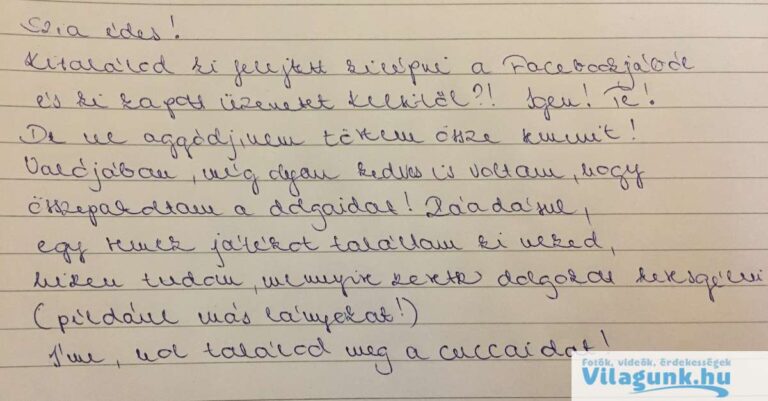 Szia édes!
Kitalálod ki felejtett kilépni a Facebookjából
és ki kapott üzenetet Kellitől?! Igen! Te!
De ne aggódj, nem törtem össze semmit!
Valójában, még olyan kedves is voltam, hogy
összepakoltam a dolgaidat! Ráadásul,
egy remek játékot találtam ki neked,
hiszen tudom, mennyire szeretsz dolgokat keresgélni
(például más lányokat!)
Íme, hol találod meg a cuccaidat!
Fotók, videók, érdekességek
Vilagunk.hu